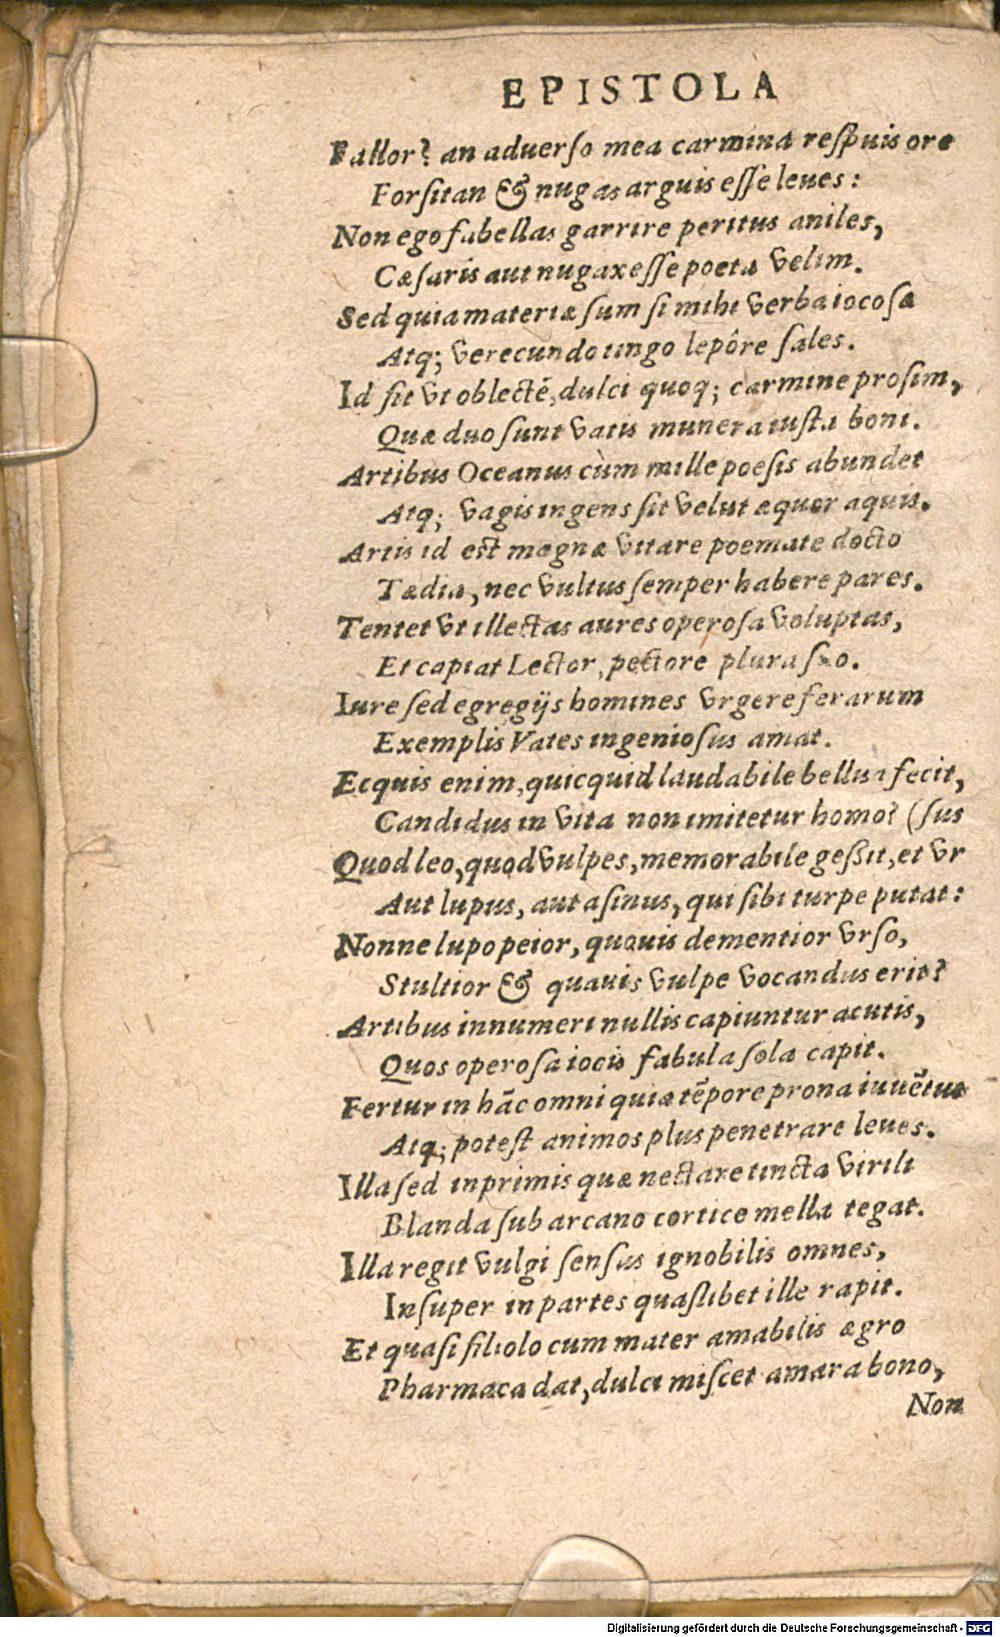 EPISTOLA
Fallor? an aduerſo mea carmina reſpuis ore
Forſitan & nugas arguis eſſe leues:
Non ego fabellas garrire peritus aniles,
Cæſaris aut nugax eſſe poeta velim.
Sed quia materiæ ſum ſi mihi verba iocoſæ
Atq; verecundo tingo lepôre ſales.
Id ſit vt oblectē, dulci quoq; carmine proſim,
Quæ duo ſunt vatis munera iuſta boni.
Artibus Oceanus cùm mille poeſis abundet
Atq; vagis ingens ſit velut æquor aquis.
Artis id eſt magnæ vitare poemate docto
Tædia, nec vultus ſemper habere pares.
Tentet vt illectas aures operoſa voluptas,
Et capiat Lector, pectore plura ſuo.
Iure ſed egregijs homines vrgere ferarum
Exemplis Vates ingenioſus amat.
Ecquis enim, quicquid laudabile bellua fecit,
Candidus in vita non imitetur homo? (ſus
Quod leo, quod vulpes, memorabile geßit, et vr
Aut lupus, aut aſinus, qui ſibi turpe putat:
Nonne lupo peior, quauis dementior vrſo,
Stultior & quauis vulpe vocandus erit?
Artibus innumeri nullis capiuntur acutis,
Quos operoſa iocis fabula ſola capit.
Fertur in hāc omni quia tēpore prona iuuētus
Atq; poteſt animos plus penetrare leues.
Illa ſed inprimis quæ nectare tincta virili
Blanda ſub arcano cortice mella tegat.
Illa regit vulgi ſenſus ignobilis omnes,
Inſuper in partes quaſlibet ille rapit.
Et quaſi filiolo cum mater amabilis ægro
Pharmaca dat, dulci miſcet amara bono,
Non
Digitalisierung gefördert durch die Deutsche Forschungsgemeinschaft - DFG